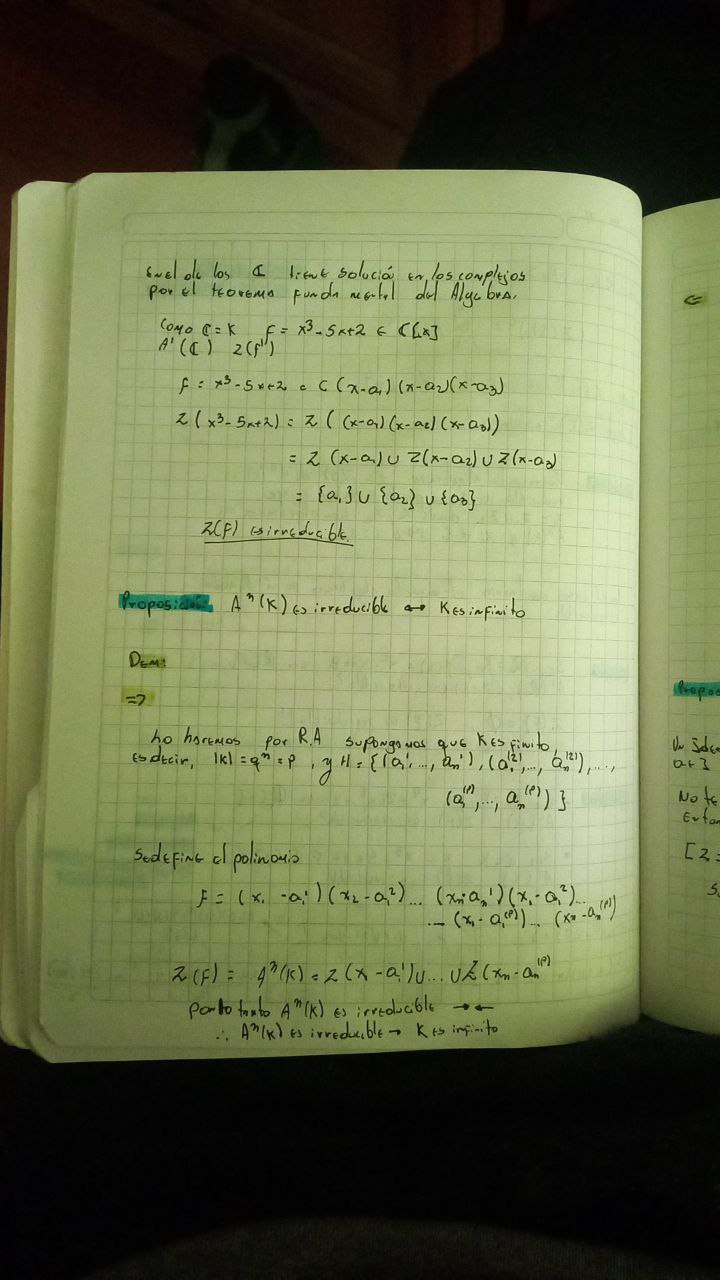 en el de los ℂ tiene solución en los complejos
por el teorema fundamental del Álgebra.
Como ℂ=K f = x³-5x+2 ∈ ℂ[x]
A'(ℂ) Z(f')
f = x³-5x+2 = c (x-a₁)(x-a₂)(x-a₃)
Z(x³-5x+2) = Z((x-a₁)(x-a₂)(x-a₃))
= Z(x-a₁) ∪ Z(x-a₂) ∪ Z(x-a₃)
= {a₁} ∪ {a₂} ∪ {a₃}
Z(f) es irreducible.
Proposición: Aⁿ(K) es irreducible ↔ K es infinito
Dem:
=>
Lo haremos por R.A supongamos que K es finito,
es decir, |K| = qⁿ = p, y H = {(a₁', ..., aₙ'), (a₁⁽²⁾, ..., aₙ⁽²⁾), ...,
(a₁⁽ᵖ⁾, ..., aₙ⁽ᵖ⁾)}
Se define el polinomio
f = (x₁ - a₁')(x₂ - a₁²) ... (xₙ - aₙ')(x₁ - a₁²) ...
... (x₁ - a₁⁽ᵖ⁾) ... (xₙ - aₙ⁽ᵖ⁾)
Z(f) = Aⁿ(K) = Z(x₁ - a₁') ∪ ... ∪ Z(xₙ - aₙ⁽ᵖ⁾)
por lo tanto Aⁿ(K) es irreducible →←
∴ Aⁿ(K) es irreducible → K es infinito
<=
Propos
Un ide
Note
Enton
[Z =